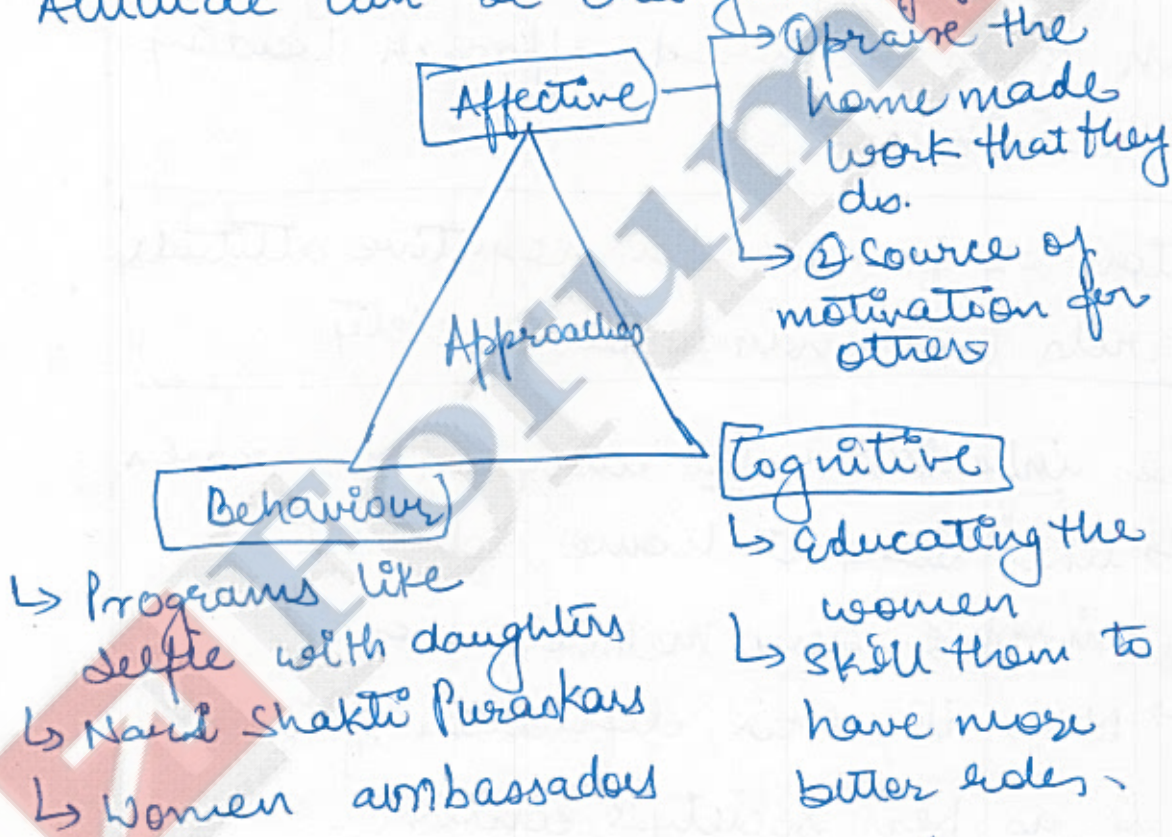 Attitude can be
Affective
→ ① praise the
home made
work that they
do.
→ ② source of
motivation for
others
Approaches
Behaviour
↳ Programs like
selfie with daughters
↳ Nari Shakti Puraskars
↳ Women ambassadors
Cognitive
↳ Educating the
women
↳ Skill them to
have more
better roles.
Forum